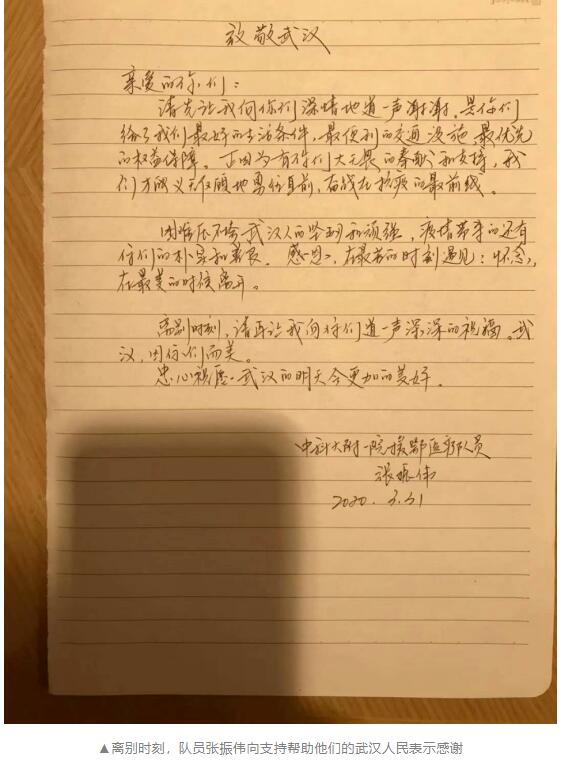 致敬武汉
亲爱的你们：
请先让我向你们深情地道一声谢谢。是你们
给了我们最好的生活条件，最便利的交通设施，最优先
的权益保障。正因为有你们大无畏的奉献和支持，我
们方能义无反顾地勇往直前，奋战在抗疫的最前线。
困难压不舍武汉人的坚强和顽强，疫情带来的还有
你们的朴实和善良。感恩，在最苦的时刻遇见；怀念，
在最美的时候离开。
离别时刻，请再让我向你们道一声深深的祝福。武
汉，因你们而美。
忠心祝愿。武汉的明天会更加的美好。
中科大附一院援鄂医疗队员
张振伟
2020.3.31
▲离别时刻，队员张振伟向支持帮助他们的武汉人民表示感谢